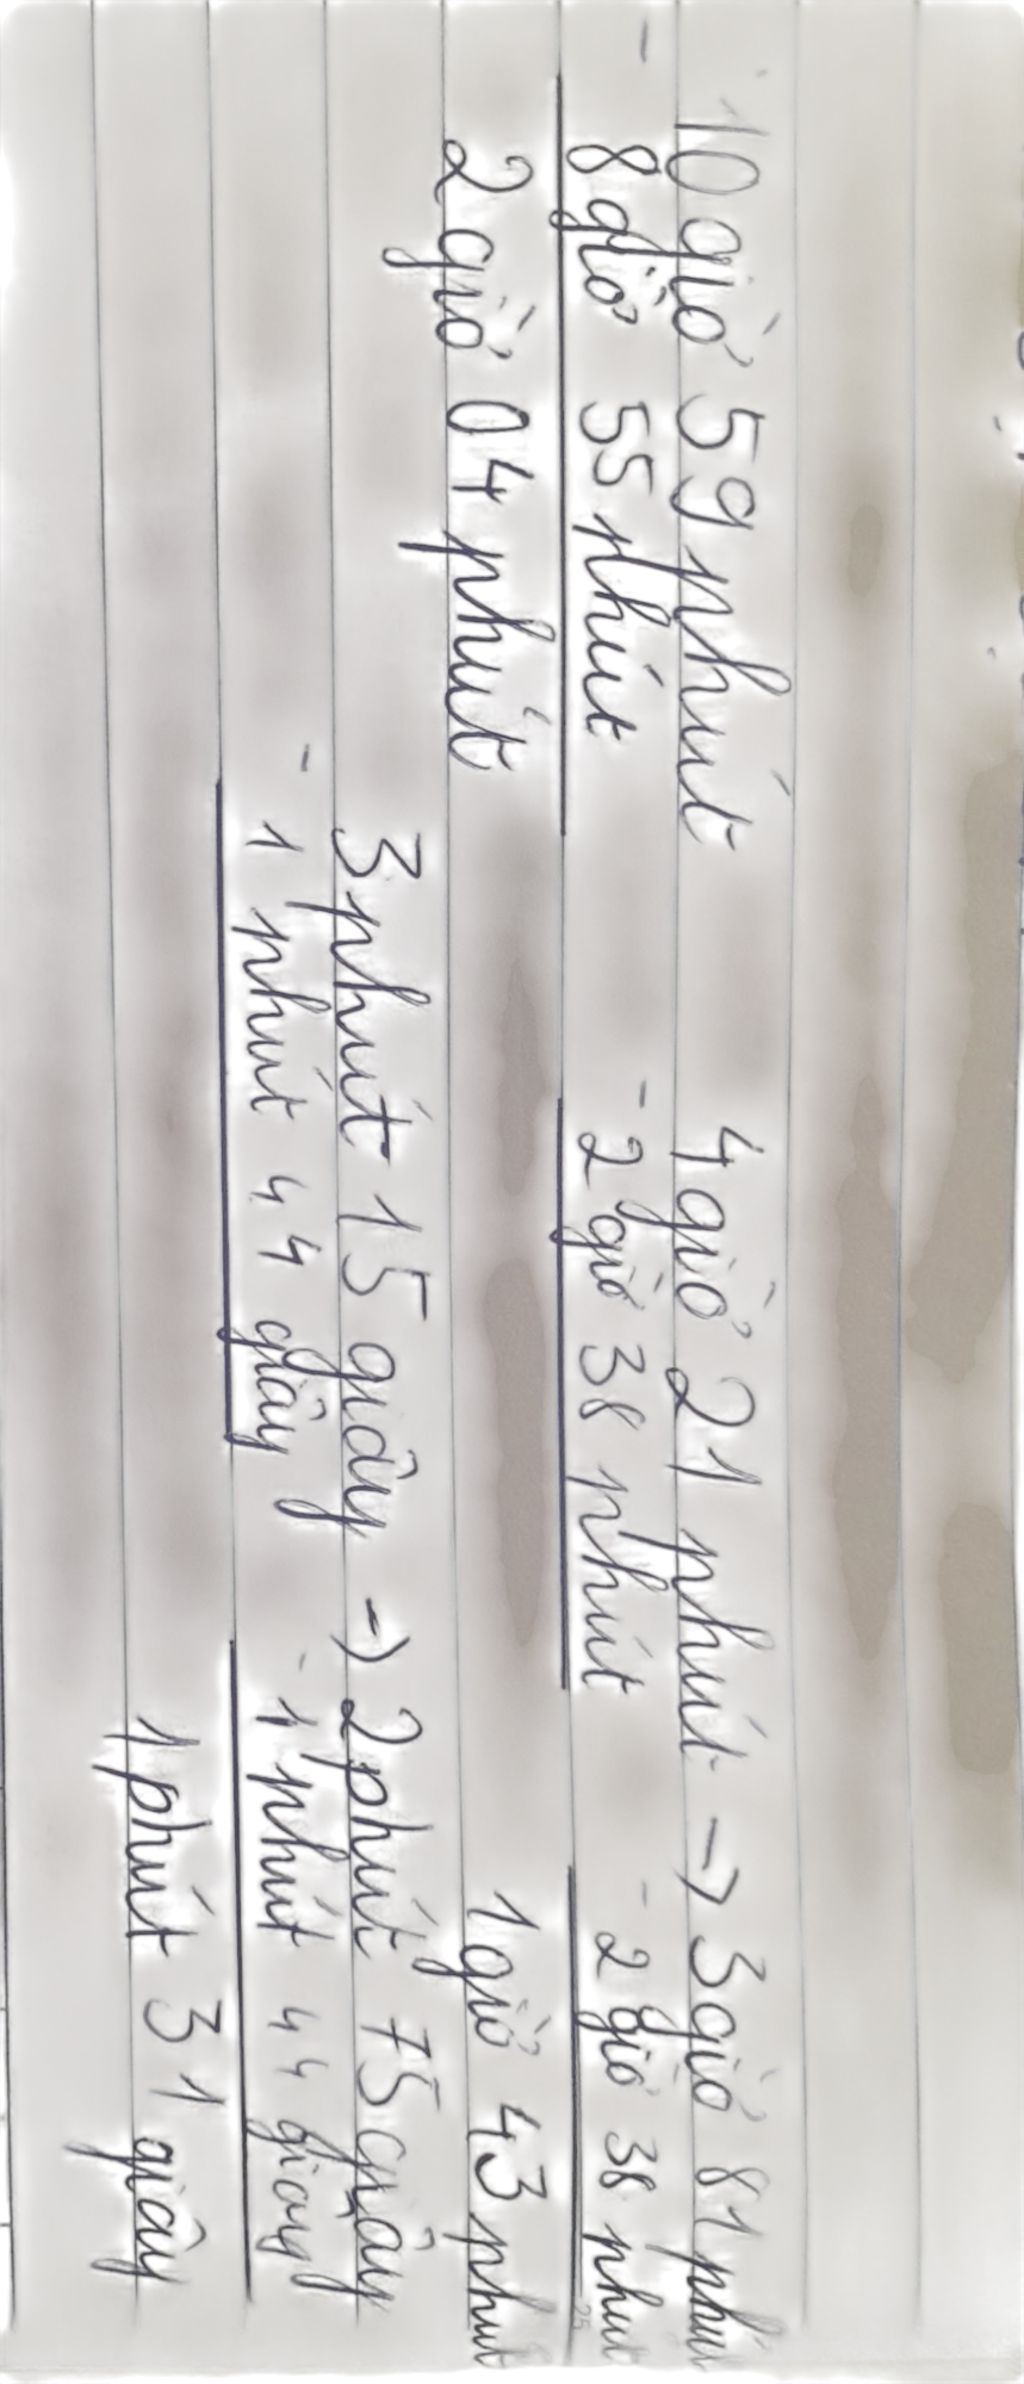 10 giờ 59 phút 4 giờ 21 phút → 3 giờ 81 phút
- 8 giờ 55 phút - 2 giờ 38 phút - 2 giờ 38 phút
2 giờ 04 phút 1 giờ 43 phút
3 phút 15 giây → 2 phút 75 giây
- 1 phút 44 giây - 1 phút 44 giây
1 phút 31 giây